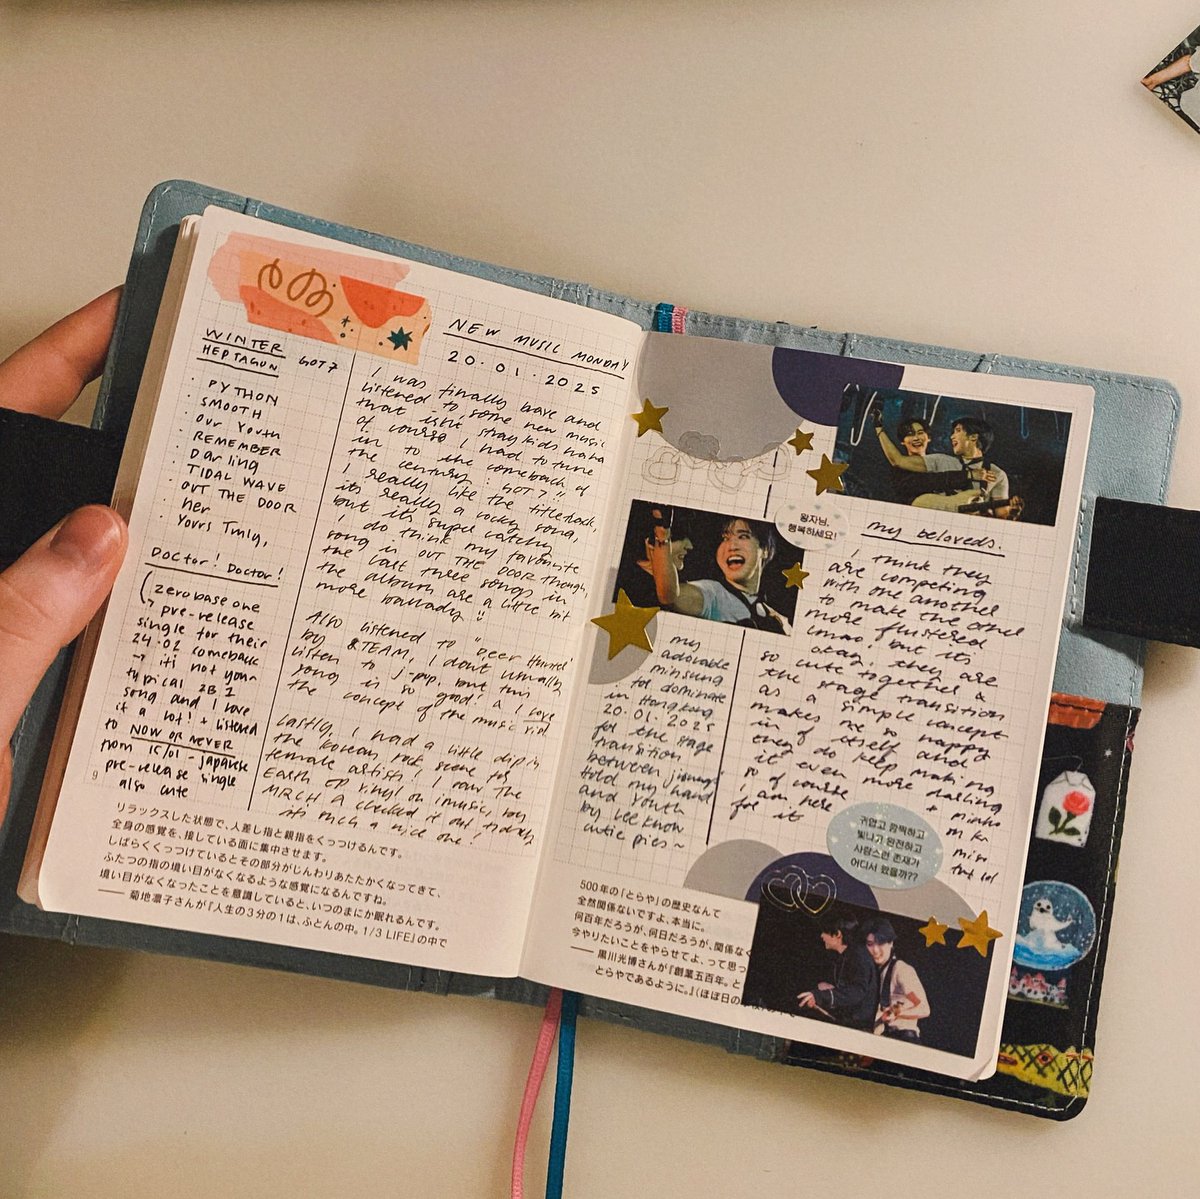 WINTER
HEPTAGON GOT7
· PYTHON
· SMOOTH
· our youth
· REMEMBER
· Darling
· TIDAL WAVE
· OUT THE DOOR
· her
· Yours Truly,
Doctor! Doctor!
(zerobaseone
↳ pre-release
single for their
24.02 comeback
→ iti not your
typical ZB1
song and I love
it a lot! + listened
to NOW OR NEVER
from 15/01 - japanese
pre-release single
also cute
NEW MUSIC MONDAY
20.01.2025
I was finally bave and
listened to some new music
that isn't stray kids haha
of course I had to tune
in to the comeback of
the century: GOT7 !!
I really like the titletrack,
its really a rocky song,
but its super catchy
I do think my favourite
song is OUT THE DOOR though,
the last three songs in
the album are a little bit
more ballady !!
Also listened to "Deer Hunter"
by &TEAM, I don't usually
listen to j-pop, but this
song is so good! & I love
the concept of the music vid
Lastly, I had a little dip in
the korean rock scene for
female artists! I saw the
EARTH EP vinyl on imusic, by
MRCH & checked it out today
its such a nice one!
9
リラックスした状態で、人差し指と親指をくっつけるんです。
全身の感覚を、接している面に集中させます。
しばらくくっつけているとその部分がじんわりあたたかくなってきて、
ふたつの指の境い目がなくなるような感覚になるんですね。
境い目がなくなったことを意識していると、いつのまにか眠れるんです。
—— 菊地凛子さんが『人生の3分の1は、ふとんの中。1/3 LIFE』の中で
왕자님,
행복하세요!
my
adorable
minsung
fot dominate
in Hongkong
20.01.2025
for the stage
transition
between jisung's
Hold my hand
and Youth
by Lee know
cutie pies~
my beloveds.
I think they
are competing
with one another
to make the other
more flustered
lmao! but its
okay, they are
so cute together &
the stage transition
as a simple concept
makes me so happy
in itself and
they do keep making
it even more darling
so of course
I am here
for it
+ minho
on
that lol
귀엽고 깜찍하고
빛나고 완전하고
사랑스런 존재가
어디서 왔을까??
500年の「とらや」の歴史なんて
全然関係ないですよ、本当に。
何百年だろうが、何日だろうが、関係なく
今やりたいことをやらせてよ、って思っ
—— 黒川光博さんが『創業五百年。と
とらやであるように。』(ほぼ日の